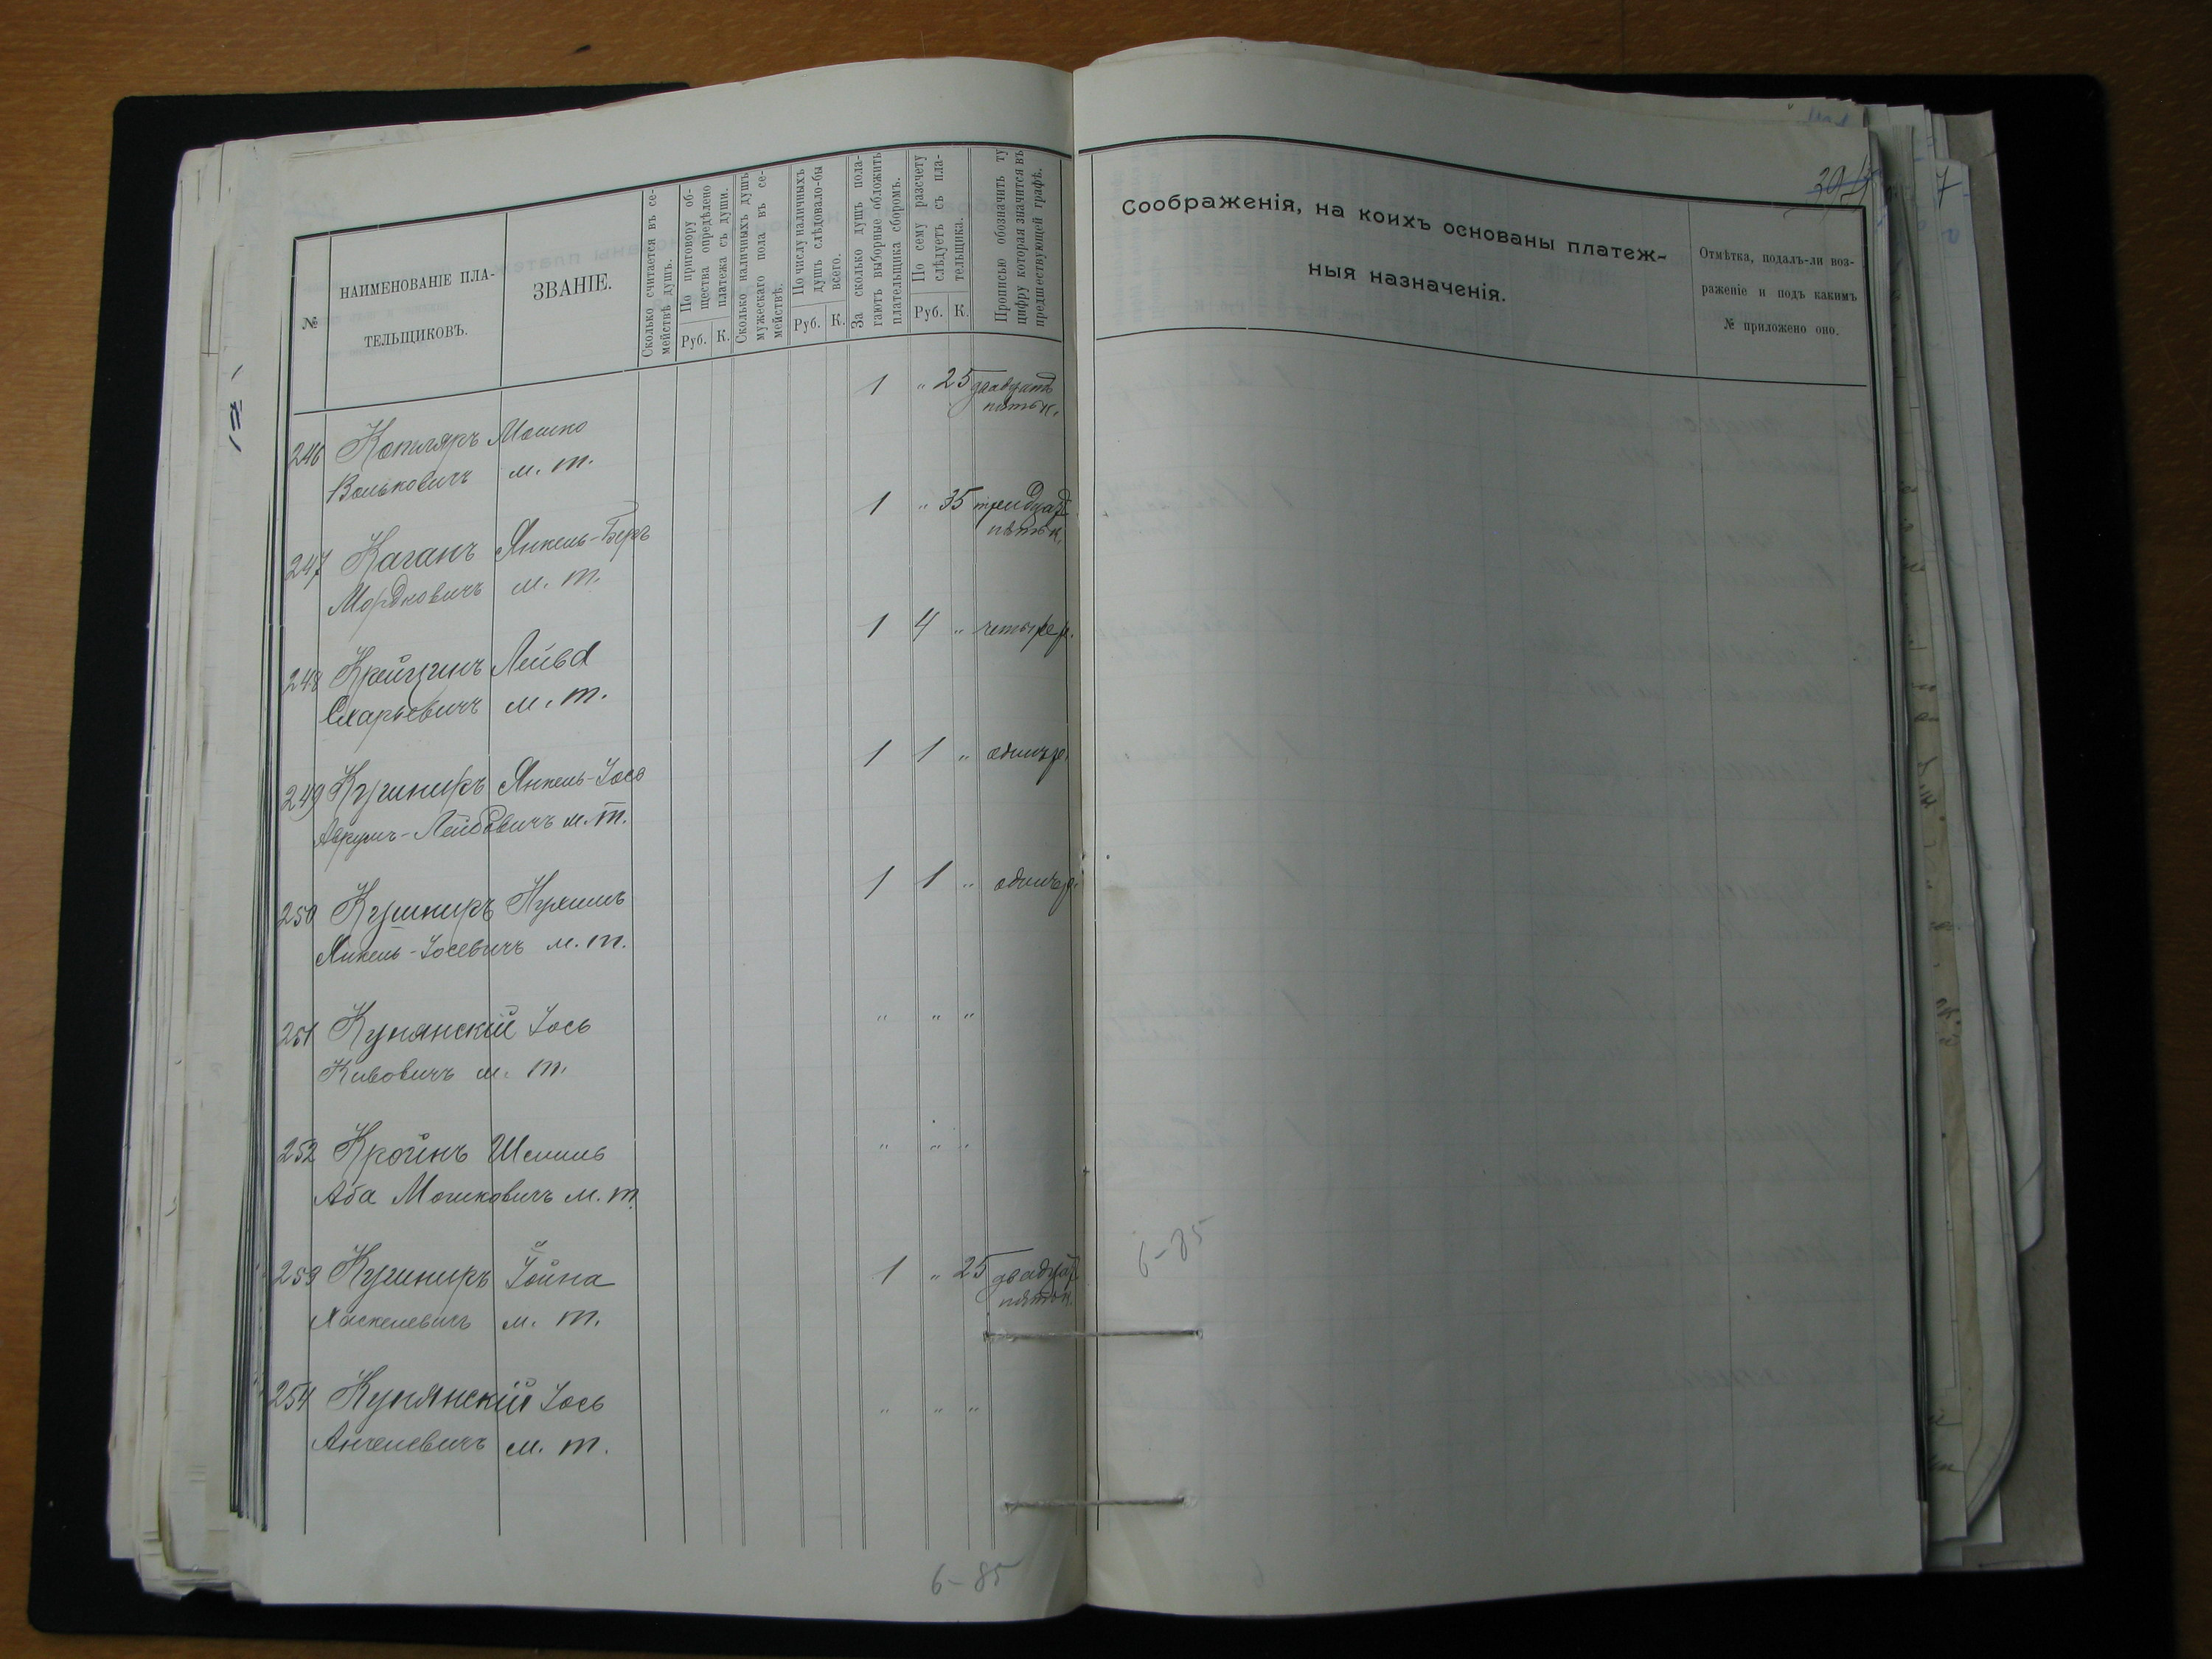 №
НАИМЕНОВАНІЕ ПЛА-
ТЕЛЬЩИКОВЪ.
ЗВАНІЕ.
Сколько считается въ се-
мействѣ душъ.
По приговору об-
щества опредѣлено
платежа съ души.
Руб. К.
Сколько наличныхъ душъ
мужескаго пола въ се-
мействѣ.
По числу наличныхъ
душъ слѣдовало-бы
всего.
Руб. К.
За сколько душъ пола-
гаютъ выборные обложить
плательщика сборомъ.
По сему разсчету
слѣдуетъ съ пла-
тельщика.
Руб. К.
Прописью обозначить ту
цифру которая значится въ
предшествующей графѣ.
246 Котляръ Мошко 1 " 25 двадцать
Вольковичъ м. т. пять к.
247 Каганъ Янкель-Беръ 1 " 35 тридцат
Мордковичъ м. т. пять к.
248 Крейцинъ Лейба 1 4 " четыре р.
м. т.
249 Кушниръ Янкель-Іось 1 1 " одинъ р.
Аврумъ-Лейбовичъ м. т.
250 Кушниръ Нухимъ 1 1 " одинъ р.
Янкель-Іосевичъ м. т.
251 Купянскій Іось " " "
Кивовичъ м. т.
252 Кройнъ " " "
Аба Мошковичъ м. т.
253 Кушниръ Іойна 1 " 25 двадцат
Хаскелевичъ м. т. пять к.
254 Купянскій Іось " " "
Анчелевичъ м. т.
6-85
Соображенія, на коихъ основаны платеж-
ныя назначенія.
Отмѣтка, подалъ-ли воз-
раженіе и подъ какимъ
№ приложено оно.
6-85